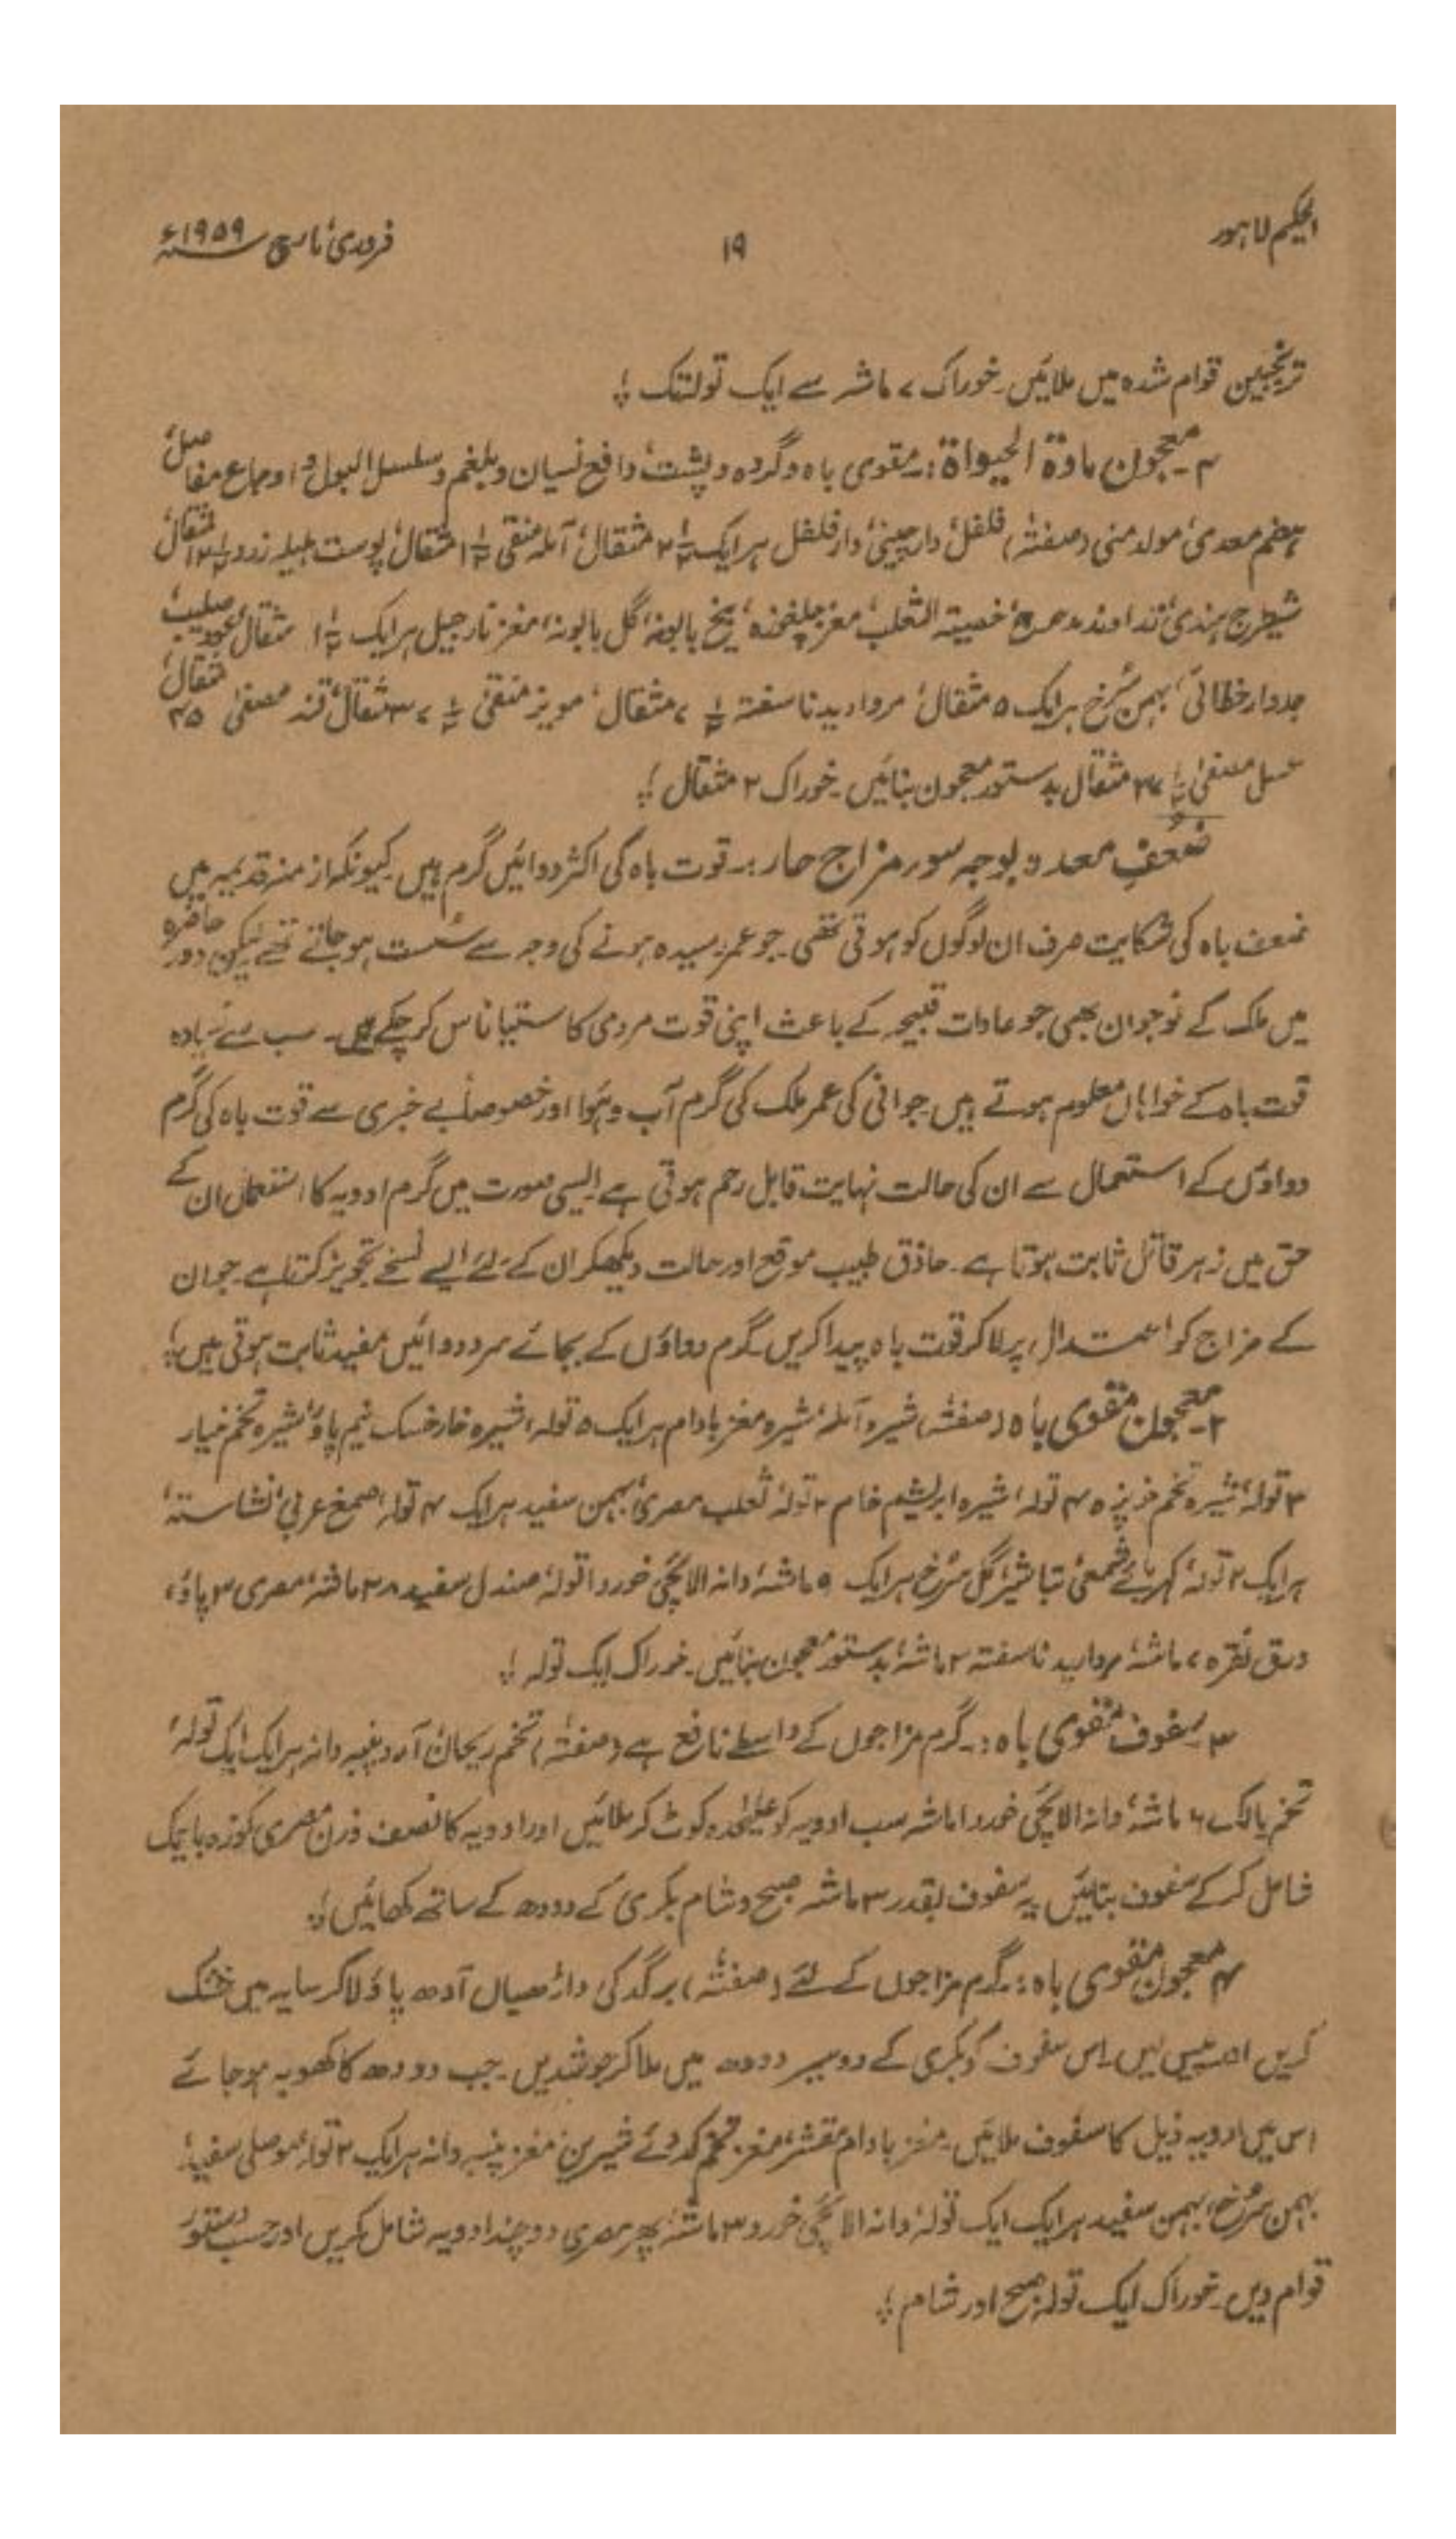 الحکیم لاہور ۱۹ فروری، مارچ سنہ ۱۹۵۹ء
ترنجبین قوام شدہ میں ملائیں۔ خوراک ۷ ماشہ سے ایک تولہ تک ؛
۳۔ معجون مادۃ الحیواۃ:۔ مقوی باہ و گردہ و پشت، دافع نسیان و بلغم و سلسل البول و اوجاع مفاصل،
ہضم معدی، مولد منی (صفتہ) فلفل، دارچینی، دار فلفل ہر ایک ۲½ مثقال، آملہ منقی ۱½ مثقال، پوست ہلیلہ زرد ۱۲½ مثقال،
شیطرج ہندی، زراوند مدحرج، خصیتہ الثعلب، مغز چلغوزہ، بیخ بابونہ، گل بابونہ، مغز نارجیل ہر ایک ۱½ مثقال، عود صلیب،
جدوار خطائی، بہمن سُرخ ہر ایک ۵ مثقال، مروارید ناسفتہ ۷½ مثقال، مویز منقیٰ ۳۷½ مثقال، قند مصفیٰ ۳۵ مثقال،
عسل مصفیٰ مثقال بدستور معجون بنائیں۔ خوراک ۲ مثقال ؛
ضعفِ معدہ بوجہ سوء مزاج حار:۔ قوت باہ کی اکثر دوائیں گرم ہیں۔ کیونکہ ازمنہ قدیمہ میں
ضعف باہ کی شکایت صرف ان لوگوں کو ہوتی تھی۔ جو عمر رسیدہ ہونے کی وجہ سے سُست ہو جاتے تھے لیکن دور حاضرہ
میں ملک کے نوجوان بھی جو عادات قبیحہ کے باعث اپنی قوت مردمی کا ستیاناس کر چکے ہیں۔ سب سے زیادہ
قوت باہ کے خواہاں معلوم ہوتے ہیں جوانی کی عمر ملک کی گرم آب و ہوا اور خصوصاً بے خبری سے قوت باہ کی گرم
دواؤں کے استعمال سے ان کی حالت نہایت قابل رحم ہوتی ہے ایسی صورت میں گرم ادویہ کا استعمال ان کے
حق میں زہر قاتل ثابت ہوتا ہے۔ حاذق طبیب موقع اور حالت دیکھکر ان کے لئے ایسے نسخے تجویز کرتا ہے جو ان
کے مزاج کو اعتدال پر لا کر قوت باہ پیدا کریں گرم دواؤں کے بجائے سرد دوائیں مفید ثابت ہوتی ہیں ؛
۲۔ معجون مقوی باہ (صفتہ) شیرہ آملہ، شیرہ مغز بادام ہر ایک ۵ تولہ، شیرہ خارخسک نیم پاؤ، شیرہ تخم خیار
۳ تولہ، شیرہ تخم خرپزہ ۴ تولہ، شیرہ ابریشم خام ۲ تولہ، ثعلب مصری، بہمن سفید ہر ایک ۴ تولہ، صمغ عربی، نشاستہ،
ہر ایک ۲ تولہ، کہربائے شمعی، تباشیر، گل سُرخ ہر ایک ۹ ماشہ، دانہ الائچی خورد ا تولہ، صندل سفید ماشہ، مصری ۳ پاؤ،
ورق نقرہ ۷ ماشہ، مروارید ناسفتہ ۲ ماشہ، بدستور معجون بنائیں۔ خوراک ایک تولہ ؛
۳۔ سفوف مقوی باہ:۔ گرم مزاجوں کے واسطے نافع ہے (صفتہ) تخم ریحان، آرد پنبہ دانہ ہر ایک ایک تولہ،
تخم پالک ۶ ماشہ، دانہ الائچی خورد ماشہ سب ادویہ کو علیٰحدہ کوٹ کر ملائیں اور ادویہ کا نصف وزن مصری کوزہ باریک
شامل کر کے سفوف بنائیں یہ سفوف بقدر ۳ ماشہ صبح و شام بکری کے دودھ کے ساتھ کھائیں ؛
۴۔ معجون مقوی باہ:۔ گرم مزاجوں کے لئے (صفتہ) برگد کی داڑھیاں آدھ پاؤ لا کر سایہ میں خشک
کریں اور پیس لیں۔ اس سفوف کو بکری کے دو سیر دودھ میں ملا کر جوش دیں۔ جب دودھ کا کھویہ ہو جائے
اس میں ادویہ ذیل کا سفوف ملائیں۔ مغز بادام مقشر، مغز تخم کدوئے شیریں، مغز پنبہ دانہ ہر ایک ۲ تولہ، موصلی سفید،
بہمن سُرخ، بہمن سفید ہر ایک ایک تولہ، دانہ الائچی خورد ۳ ماشہ، پھر مصری دو چند ادویہ شامل کریں اور حسب دستور
قوام دیں۔ خوراک ایک تولہ صبح اور شام ؛